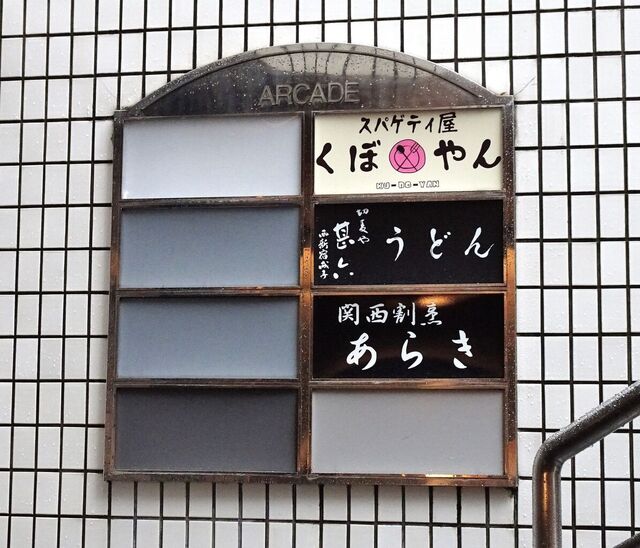 ARCADE
スパゲティ屋
くぼやん
KU-BO-YAN
切麦や
甚六
西新宿
うどん
関西割烹
あらき